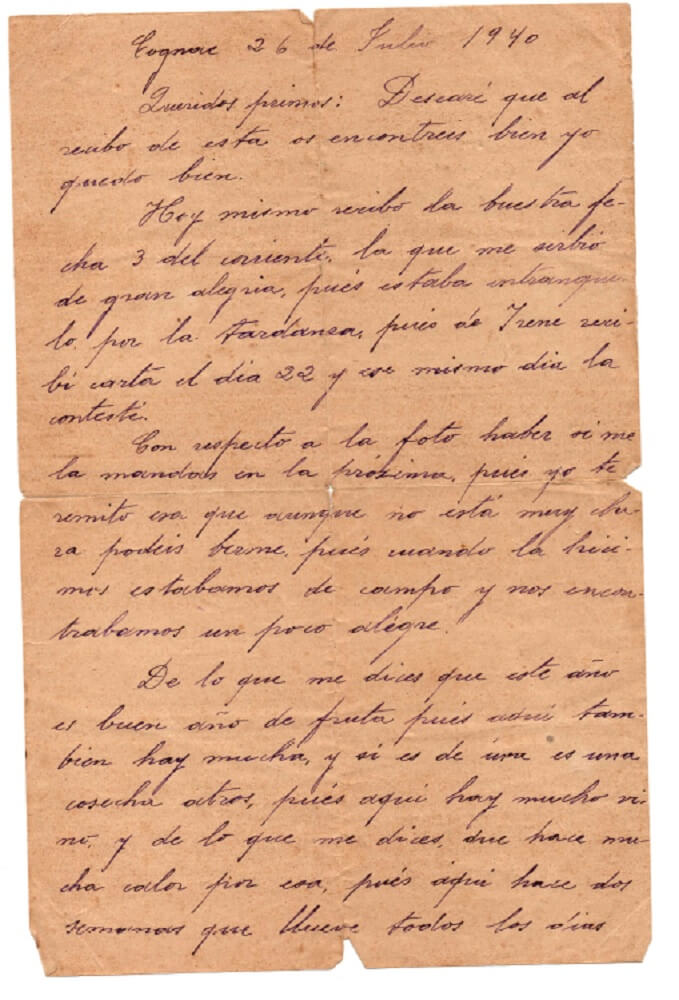 Cognac 26 de Julio 1940
Queridos primos: Desearé que al
recibo de esta os encontreis bien yo
quedo bien.
Hoy mismo recibo la buestra fe-
cha 3 del corriente, la que me serbió
de gran alegria, pués estaba intranqui-
lo por la tardanza, pués de Irene reci-
bí carta el dia 22 y ese mismo dia la
contesté.
Con respecto a la foto haber si me
la mandas en la próxima, pués yo te
remito esa que aunque no está muy cla-
ra podeis berme, pués cuando la hici-
mos estabamos de campo y nos encon-
trabamos un poco alégre.
De lo que me dices que este año
es buen año de fruta pués aquí tam-
bien hay mucha, y si es de úva es una
cosecha atros, pués aquí hay mucho vi-
no, y de lo que me dices, que hace mu-
cha calor por esa, pués áquí hace dos
semanas que llueve todos los dias